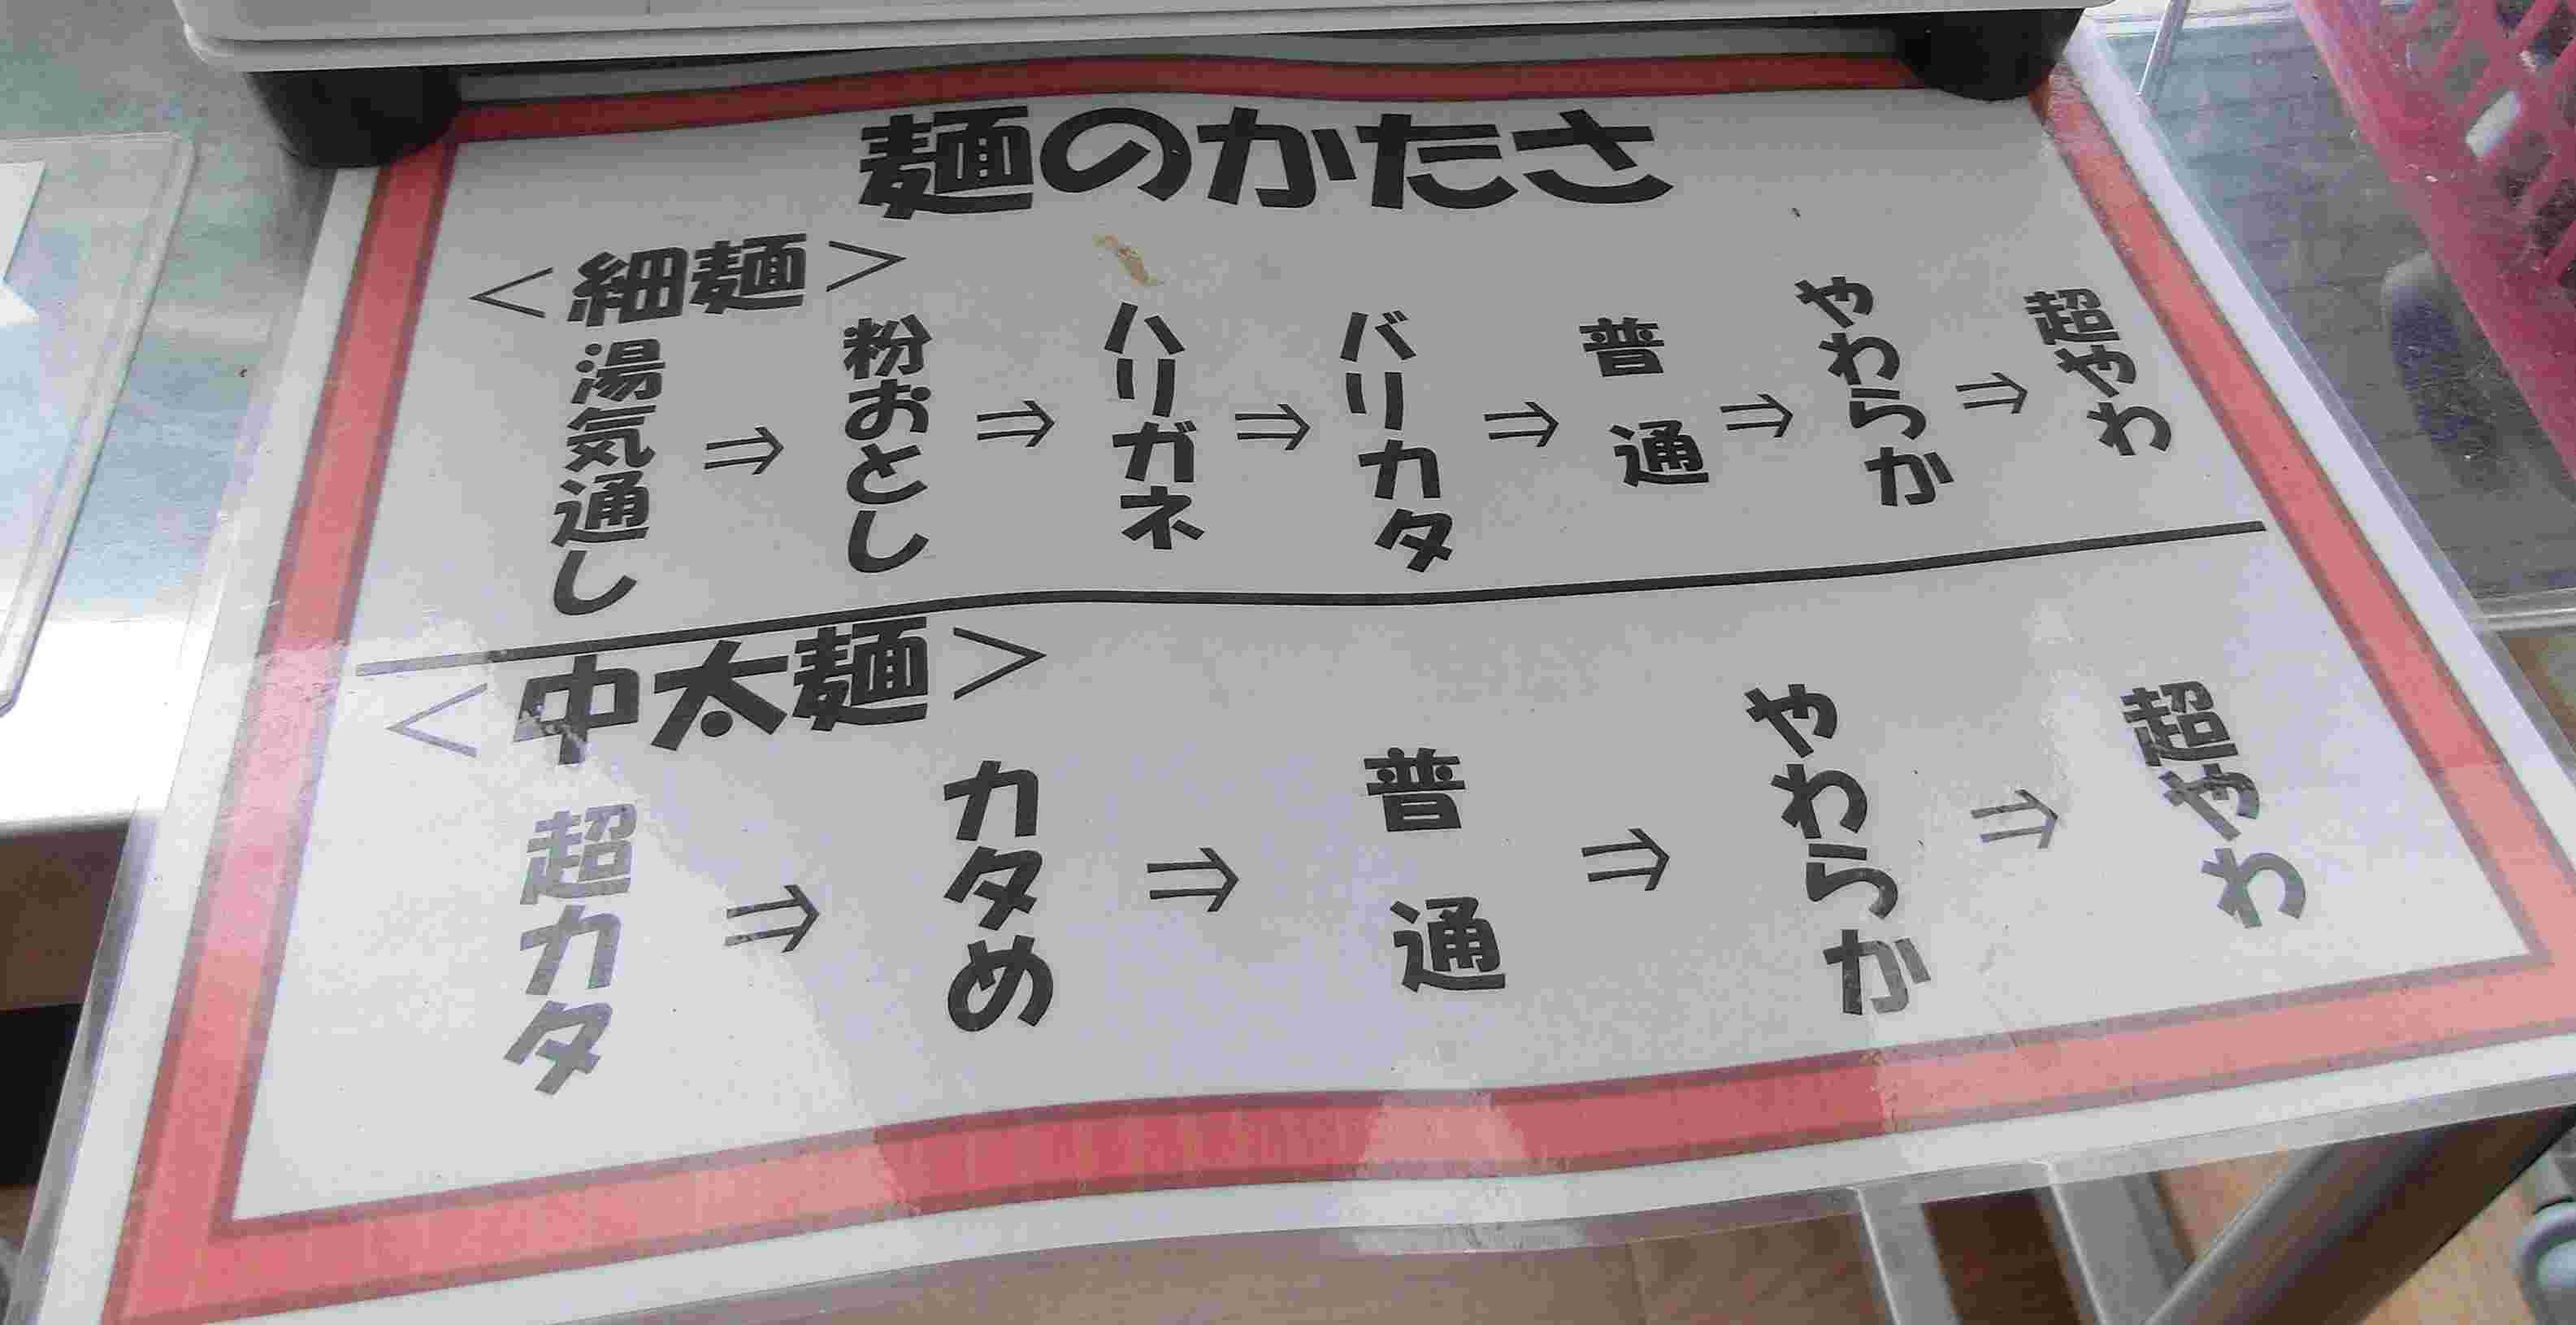 麺のかたさ
＜細麺＞
湯気通し⇒粉おとし⇒ハリガネ⇒バリカタ⇒普通⇒やわらか⇒超やわ
＜中太麺＞
超カタ⇒カタめ⇒普通⇒やわらか⇒超やわ